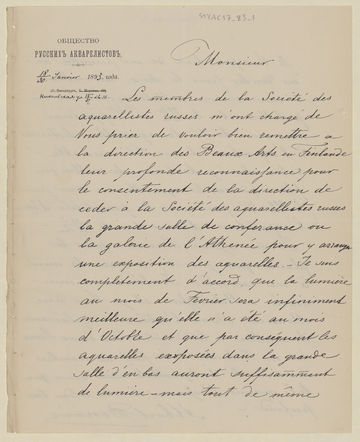 ОБЩЕСТВО
РУССКИХЪ АКВАРЕЛИСТОВЪ.
Января 1893 года.
С.-Петербургъ
Monsieur
Les membres de la Société des
aquarellistes russes m'ont chargé de
Vous prier de vouloir bien remettre a
la direction des Beaux Arts en Finlande
leur profonde reconnaissance pour
le consentement de la direction de
ceder à la Société des aquarellistes russes
la grande salle de conferance ou
la galerie de l'Athenée pour y arranger
une exposition des aquarelles. – Je suis
complètement d'accord, que la lumière
au mois de Fevrier sera infiniment
meilleure qu'elle n'a été au mois
d'Octobre et que par conséquent les
aquarelles exoposées dans la grande
salle d'en bas auront suffisamment
de lumière – mais tout de même